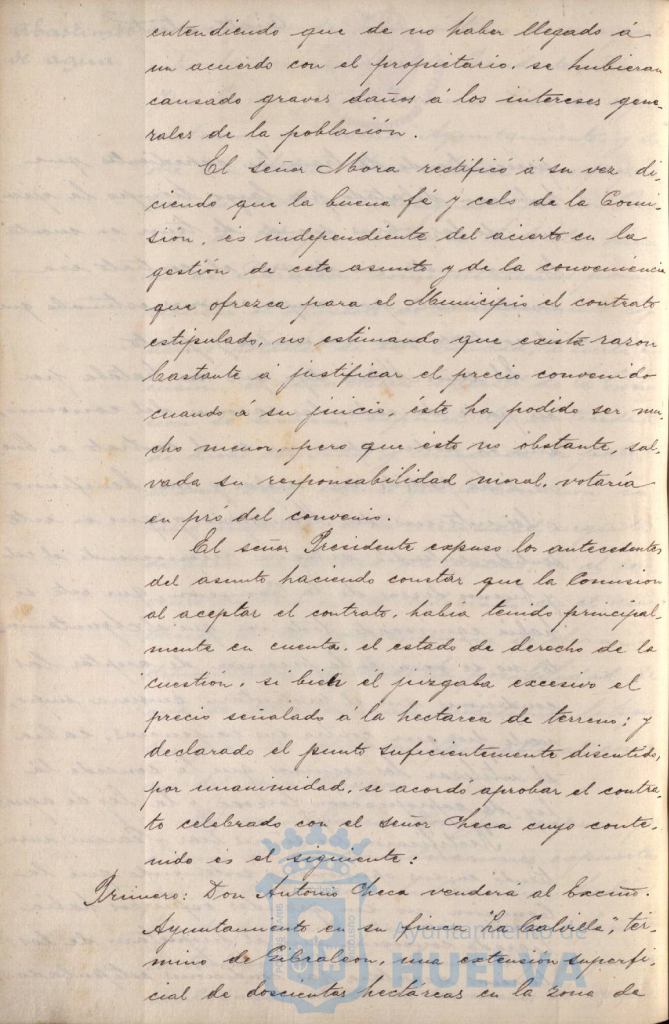 entendiendo que de no haber llegado á
un acuerdo con el propietario, se hubieran
causado graves daños á los intereses gene-
rales de la población.
El señor Mora rectificó á su vez di-
ciendo que la buena fé y celo de la Comi-
sion, es independiente del acierto en la
gestión de este asunto y de la conveniencia
que ofrezca para el Municipio el contrato
estipulado, no estimando que exista razon
bastante á justificar el precio convenido
cuando á su juicio, éste ha podido ser mu-
cho menor, pero que esto no obstante, sal-
vada su responsabilidad moral, votaría
en pró del convenio.
El señor Presidente expuso los antecedentes
del asunto haciendo constar que la Comision
al aceptar el contrato, habia tenido principal-
mente en cuenta, el estado de derecho de la
cuestión, si bien él juzgaba excesivo el
precio señalado á la hectárea de terreno; y
declarado el punto suficientemente discutido,
por unanimidad, se acordó aprobar el contra-
to celebrado con el señor Checa cuyo conte-
nido es el siguiente:
Primero: Don Antonio Checa venderá al Excmo.
Ayuntamiento en su finca "La Calvilla", tér-
mino de Gibraleon, una extensión superfi-
cial de doscientas hectáreas en la zona de
Ayuntamiento de
HUELVA